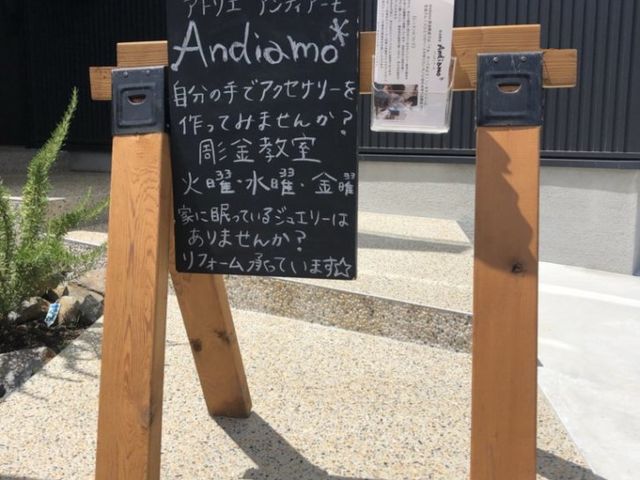 アトリエ アンディアーモ
Andiamo*
自分の手でアクセサリーを
作ってみませんか?
彫金教室
火曜・水曜・金曜
家に眠っているジュエリーは
ありませんか?
リフォーム承っています☆
Andiamo